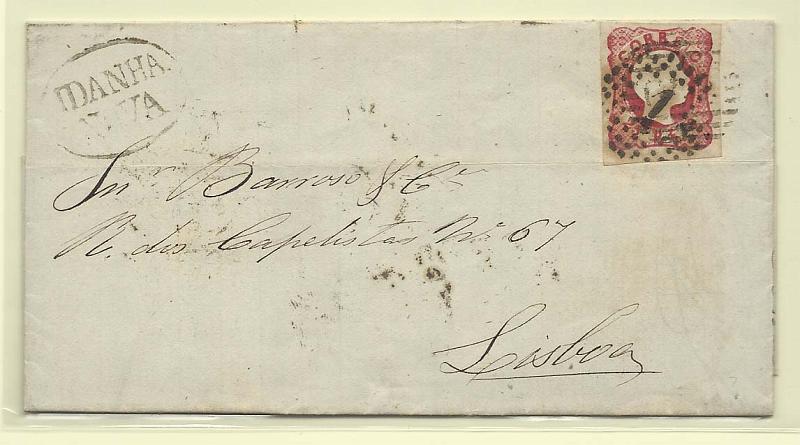 IDANHA
NOVA
CORREIO
1
Snr Barroso & Ca
R. dos Capelistas No 67
Lisboa